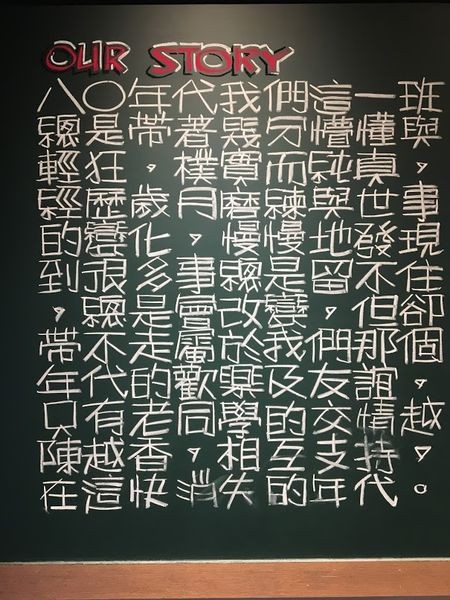 OUR STORY
八〇年代我們這一班
總是帶著幾分懵懂與
輕狂，樸實而純真，
經歷歲月磨練與世事
的變化，慢慢地發現
到很多事總是留不住
，總是會改變，但卻
帶不走屬於我們那個
年代的歡樂及友誼，
只有老同學的交情越
陳越香，相互支持，
在這快消失的年代。